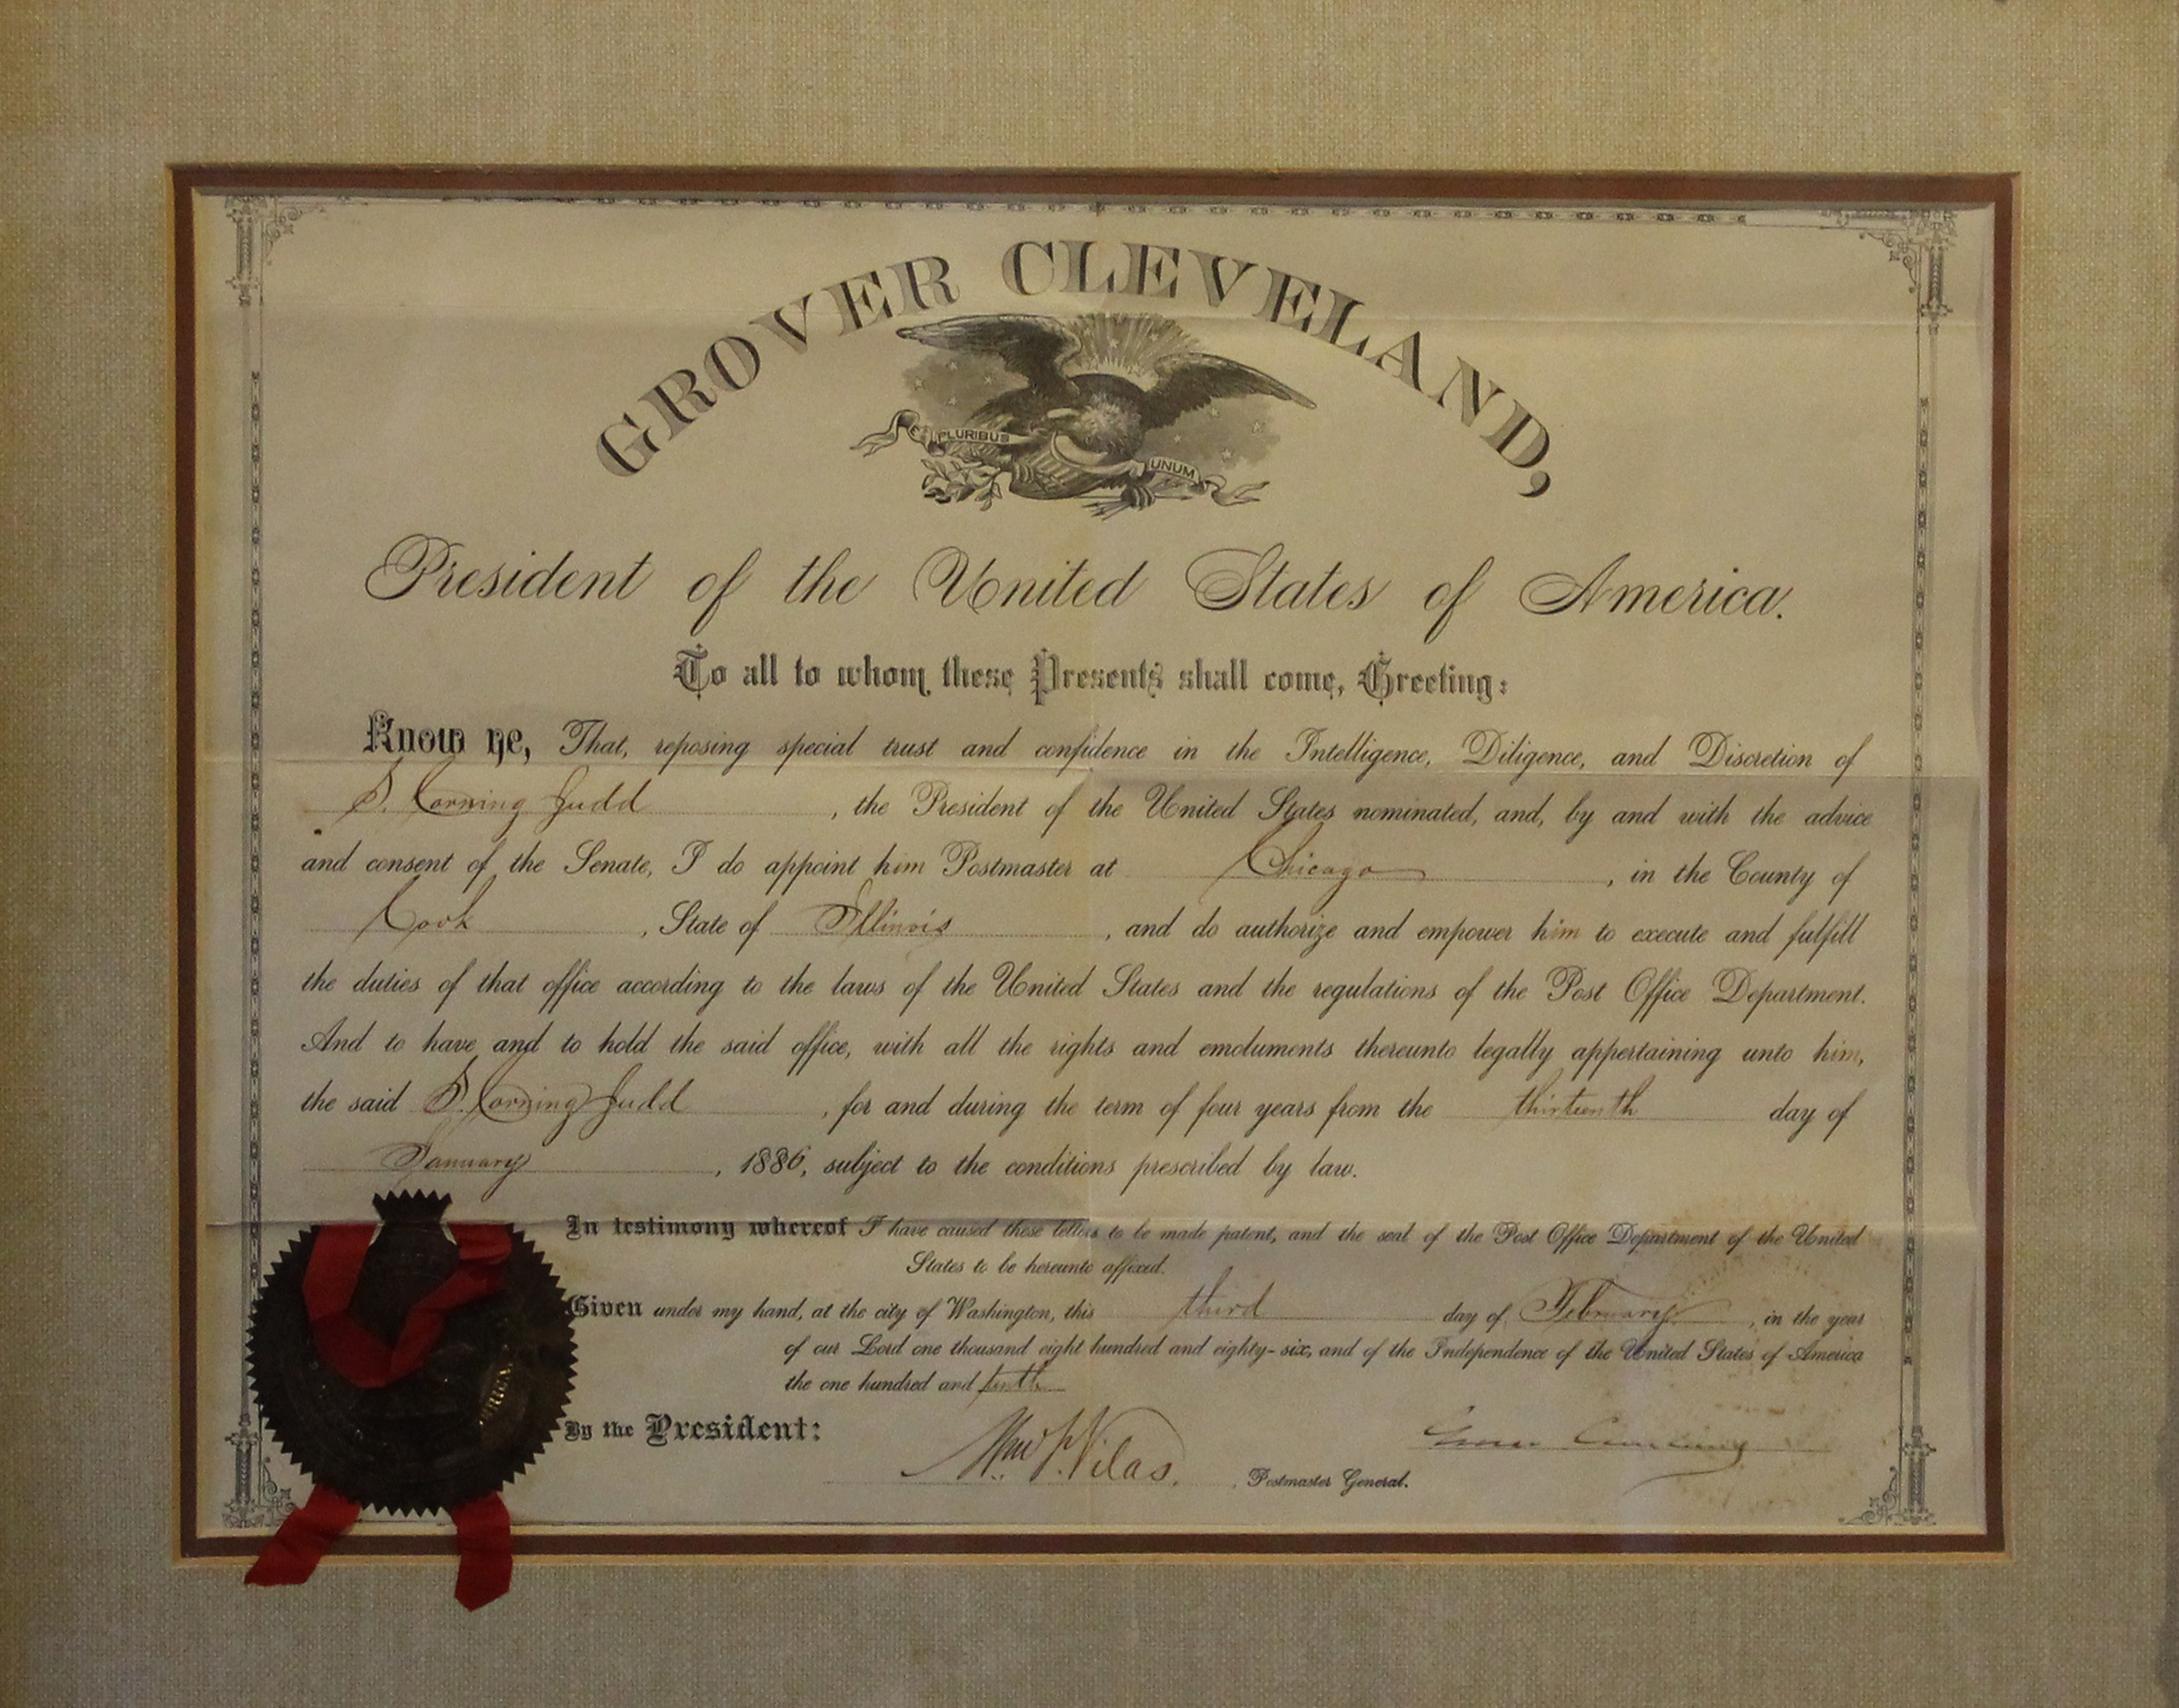 GROVER CLEVELAND,
E PLURIBUS UNUM
President of the United States of America.
To all to whom these Presents shall come, Greeting:
Know ye, That, reposing special trust and confidence in the Intelligence, Diligence, and Discretion of
S. Corning Judd, the President of the United States nominated, and, by and with the advice
and consent of the Senate, I do appoint him Postmaster at Chicago, in the County of
Cook, State of Illinois, and do authorize and empower him to execute and fulfill
the duties of that office according to the laws of the United States and the regulations of the Post Office Department.
And to have and to hold the said office, with all the rights and emoluments thereunto legally appertaining unto him,
the said S. Corning Judd, for and during the term of four years from the thirteenth day of
January, 1886, subject to the conditions prescribed by law.
In testimony whereof I have caused these letters to be made patent, and the seal of the Post Office Department of the United
States to be hereunto affixed.
Given under my hand, at the city of Washington, this third day of February, in the year
of our Lord one thousand eight hundred and eighty-six, and of the Independence of the United States of America
the one hundred and tenth
By the President:
Wm F. Vilas, Postmaster General.